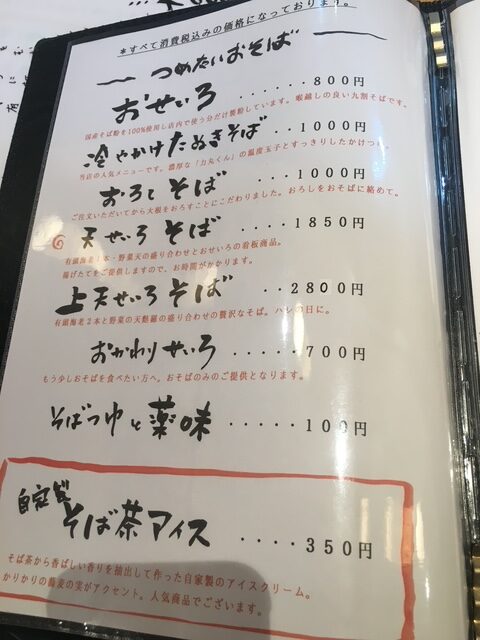 *すべて消費税込みの価格になっております。
つめたいおそば
おせいろ ・・・・・800円
国産そば粉を100%使用し店内で使う分だけ製粉しています。喉越しの良い九割そばです。
冷やかけたぬきそば ・・・1000円
当店の人気メニューです。濃厚な「力丸くん」の温度玉子とすっきりしたかけつゆ
おろしそば ・・・・・1000円
ご注文いただいてから大根をおろすことにこだわりました。おろしをおそばに絡めて。
天せいろそば ・・・・1850円
有頭海老1本・野菜天の盛り合わせとおせいろの看板商品。
揚げたてをご提供しますので、お時間がかかります。
上天せいろそば ・・2800円
有頭海老2本と野菜の天麩羅の盛り合わせの贅沢なそば。ハレの日に。
おかわりせいろ ・・・・・700円
もう少しおそばを食べたい方へ。おそばのみのご提供となります。
そばつゆと薬味 ・・・・・100円
自家製
そば茶アイス ・・・・350円
そば茶から香ばしい香りを抽出して作った自家製のアイスクリーム。
かりかりの蕎麦の実がアクセント。人気商品でございます。